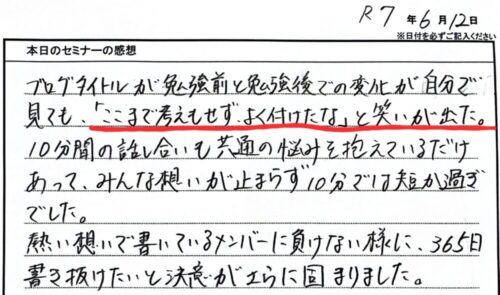 R7年6月12日
※日付を必ずご記入ください
本日のセミナーの感想
ブログタイトルが勉強前と勉強後での変化が自分で
見ても、「ここまで考えもせず、よく付けたな」と笑いが出た。
10分間の話し合いも共通の悩みを抱えているだけ
あって、みんな想いが止まらず10分では短か過ぎ
でした。
熱い想いで書いているメンバーに負けない様に、365日
書き抜けたいと決意がさらに固まりました。